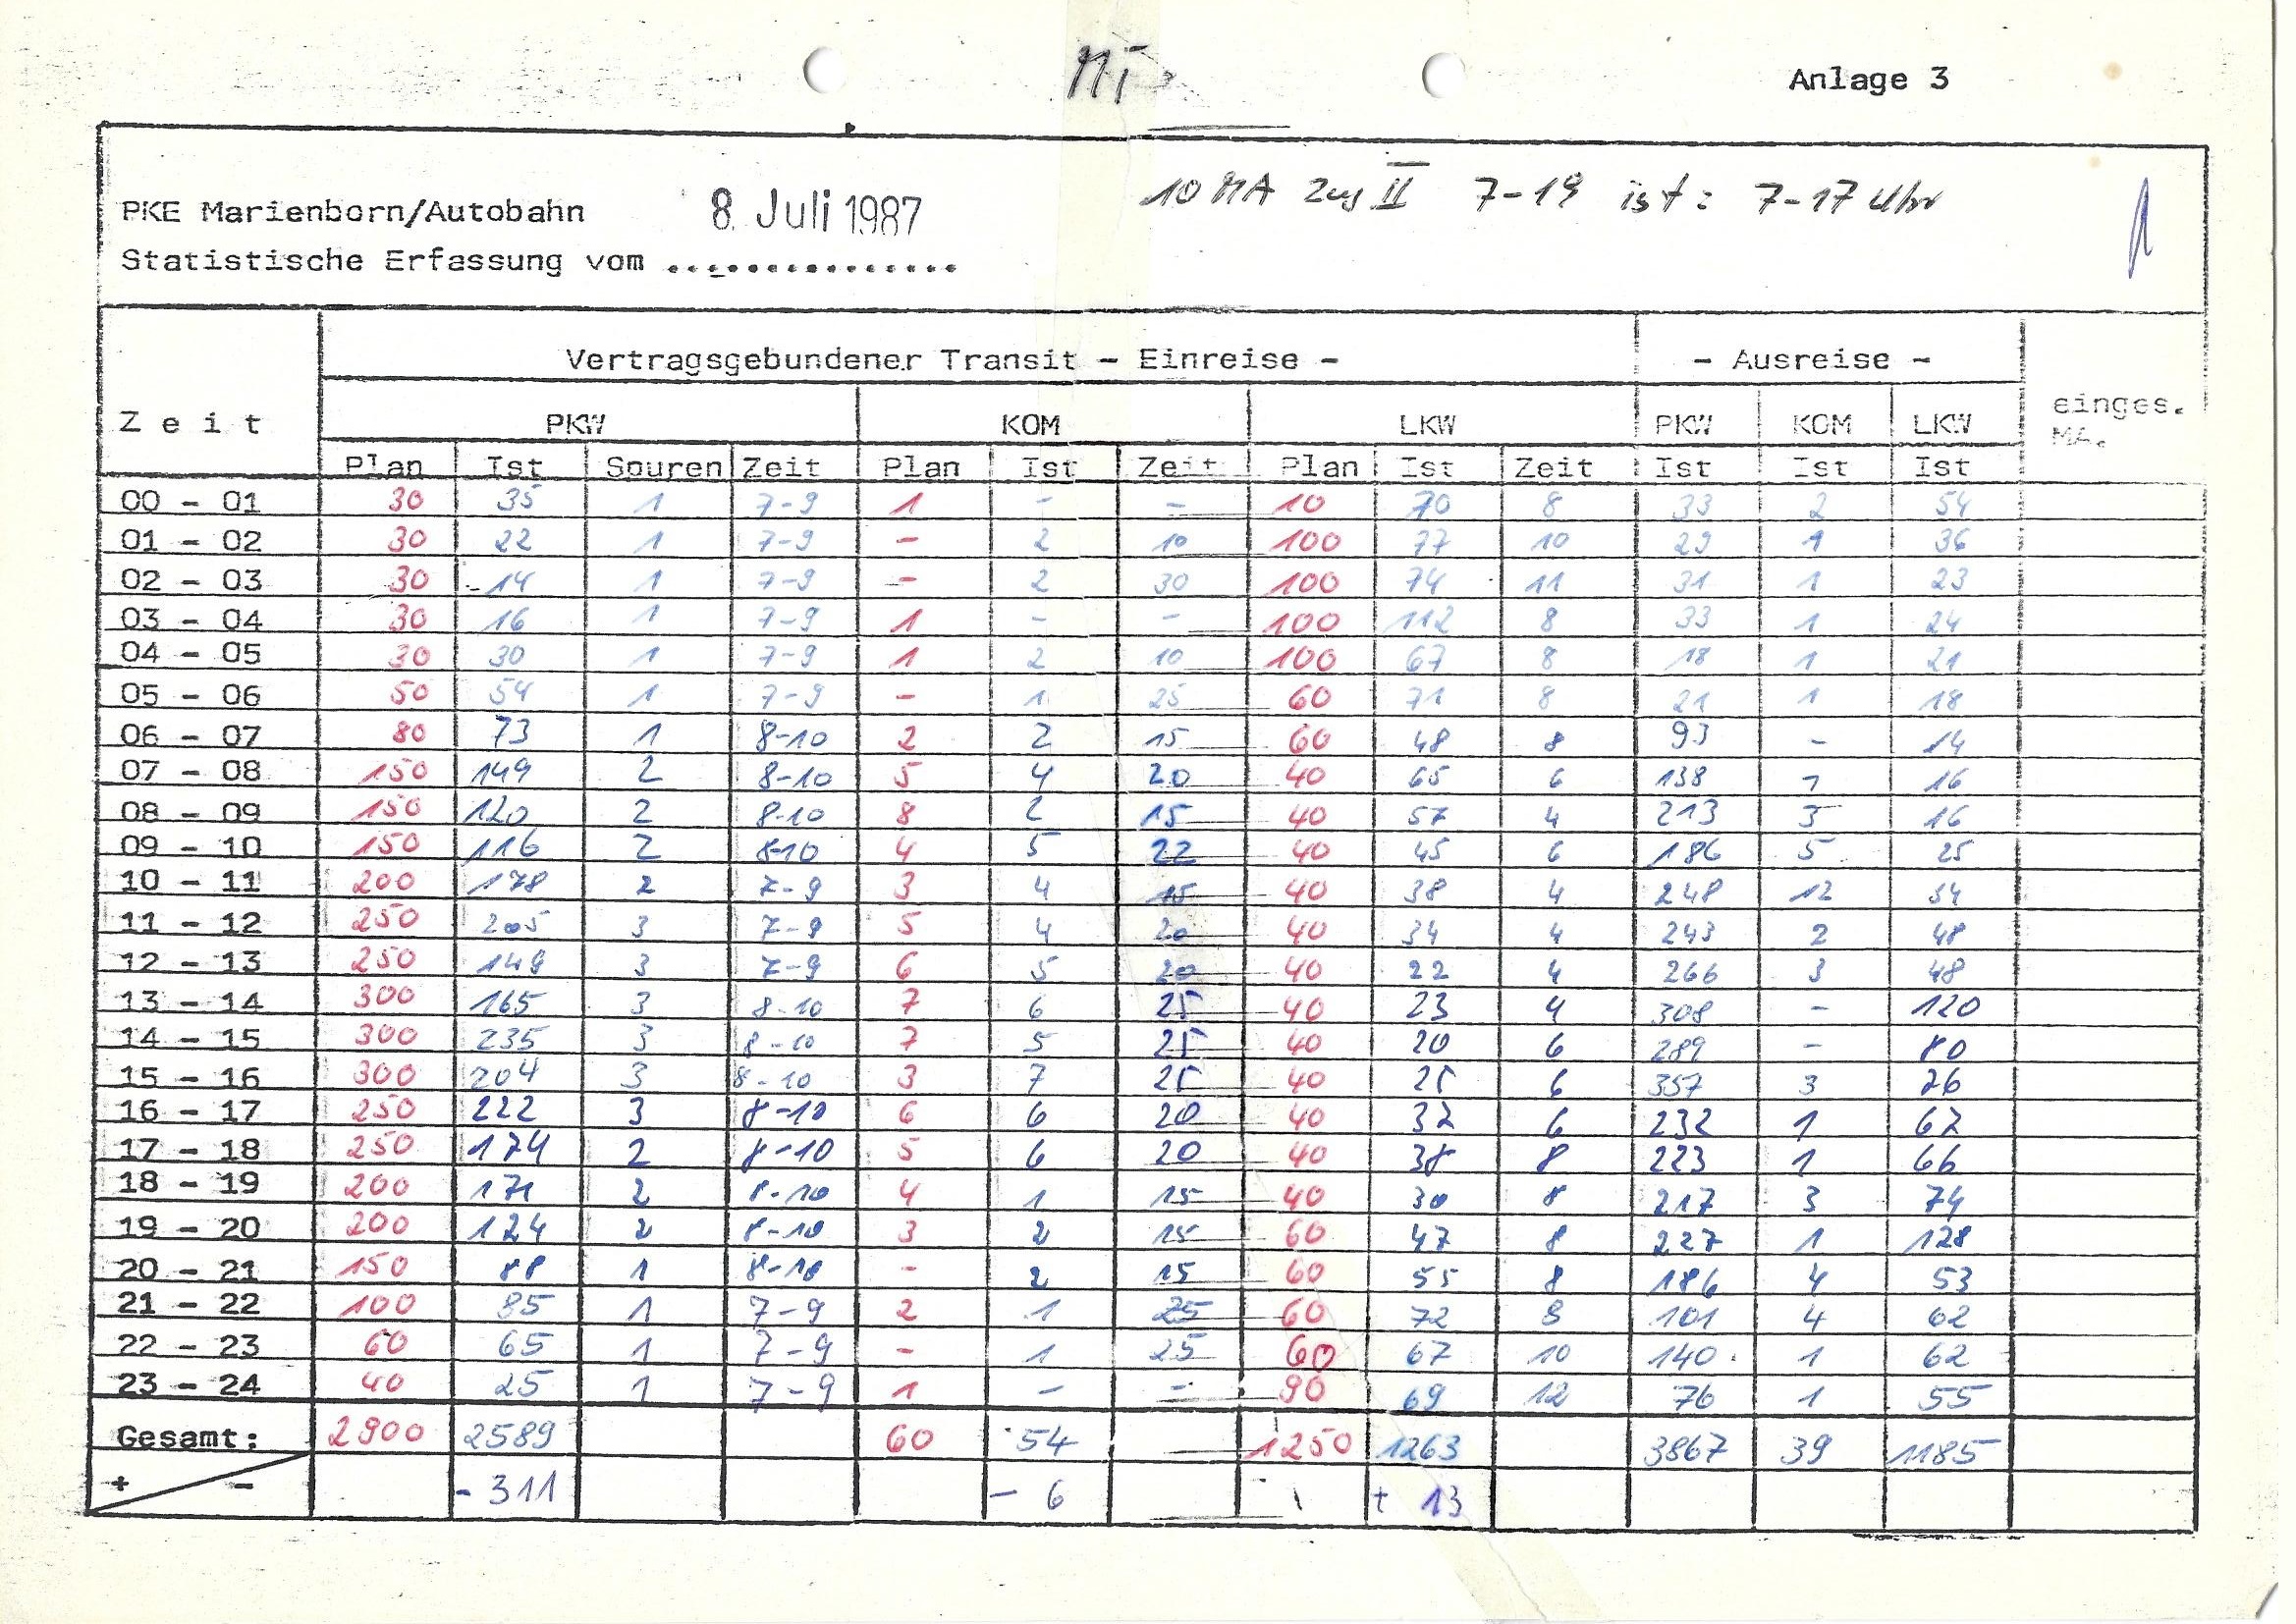 Mi
Anlage 3
10 MA Zug II 7-19 ist: 7-17 Uhr
PKE Marienborn/Autobahn 8. Juli 1987
Statistische Erfassung vom ...............
Vertragsgebundener Transit - Einreise - - Ausreise -
Zeit PKW KOM LKW PKW KOM LKW einges. MA.
Plan Ist Spuren Zeit Plan Ist Zeit Plan Ist Zeit Ist Ist Ist
00 - 01 30 35 1 7-9 1 - - 10 70 8 33 2 54
01 - 02 30 22 1 7-9 - 2 10 100 77 10 29 1 36
02 - 03 30 14 1 7-9 - 2 30 100 74 11 31 1 23
03 - 04 30 16 1 7-9 1 - - 100 112 8 33 1 24
04 - 05 30 30 1 7-9 1 2 10 100 67 8 18 1 21
05 - 06 50 54 1 7-9 - 1 25 60 71 8 21 1 18
06 - 07 80 73 1 8-10 2 2 15 60 48 8 93 - 14
07 - 08 150 149 2 8-10 5 4 20 40 65 6 138 16
08 - 09 150 120 2 8-10 8 2 15 40 57 4 213 16
09 - 10 150 116 2 8-10 4 5 22 40 45 6 186 5 25
10 - 11 200 178 2 7-9 3 4 15 40 38 4 248 12
11 - 12 250 205 3 7-9 5 4 20 40 34 4 243 2 48
12 - 13 250 149 3 7-9 6 5 20 40 22 4 266 3 48
13 - 14 300 165 3 8-10 7 6 25 40 23 4 308 - 120
14 - 15 300 235 3 8-10 7 5 25 40 20 6 289 - 80
15 - 16 300 204 3 8-10 3 7 25 40 25 6 357 3 76
16 - 17 250 222 3 8-10 6 6 20 40 37 6 232 1 67
17 - 18 250 174 2 8-10 5 6 20 40 38 8 223 1 66
18 - 19 200 171 2 8-10 4 1 15 40 30 8 217 3 74
19 - 20 200 124 2 8-10 3 2 15 60 47 8 227 1 128
20 - 21 150 88 1 8-10 - 2 15 60 55 8 186 4 53
21 - 22 100 85 1 7-9 2 1 25 60 72 8 101 4 62
22 - 23 60 65 1 7-9 - 1 25 60 67 10 140 1 62
23 - 24 40 25 1 7-9 1 - - 90 69 12 76 1 55
Gesamt: 2900 2589 60 54 1250 1263 3867 39 1185
+ - - 311 - 6 + 13